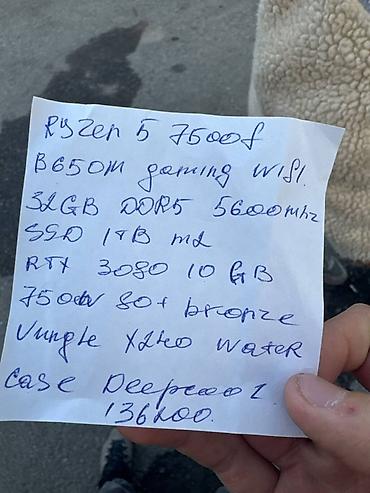 Ryzen 5 7500f
B650M gaming wifi.
32GB DDR5 5600mhz
SSD 1TB m2
RTX 3080 10 GB
750W 80+ bronze
Jungle X240 water
case Deepcool
136200.